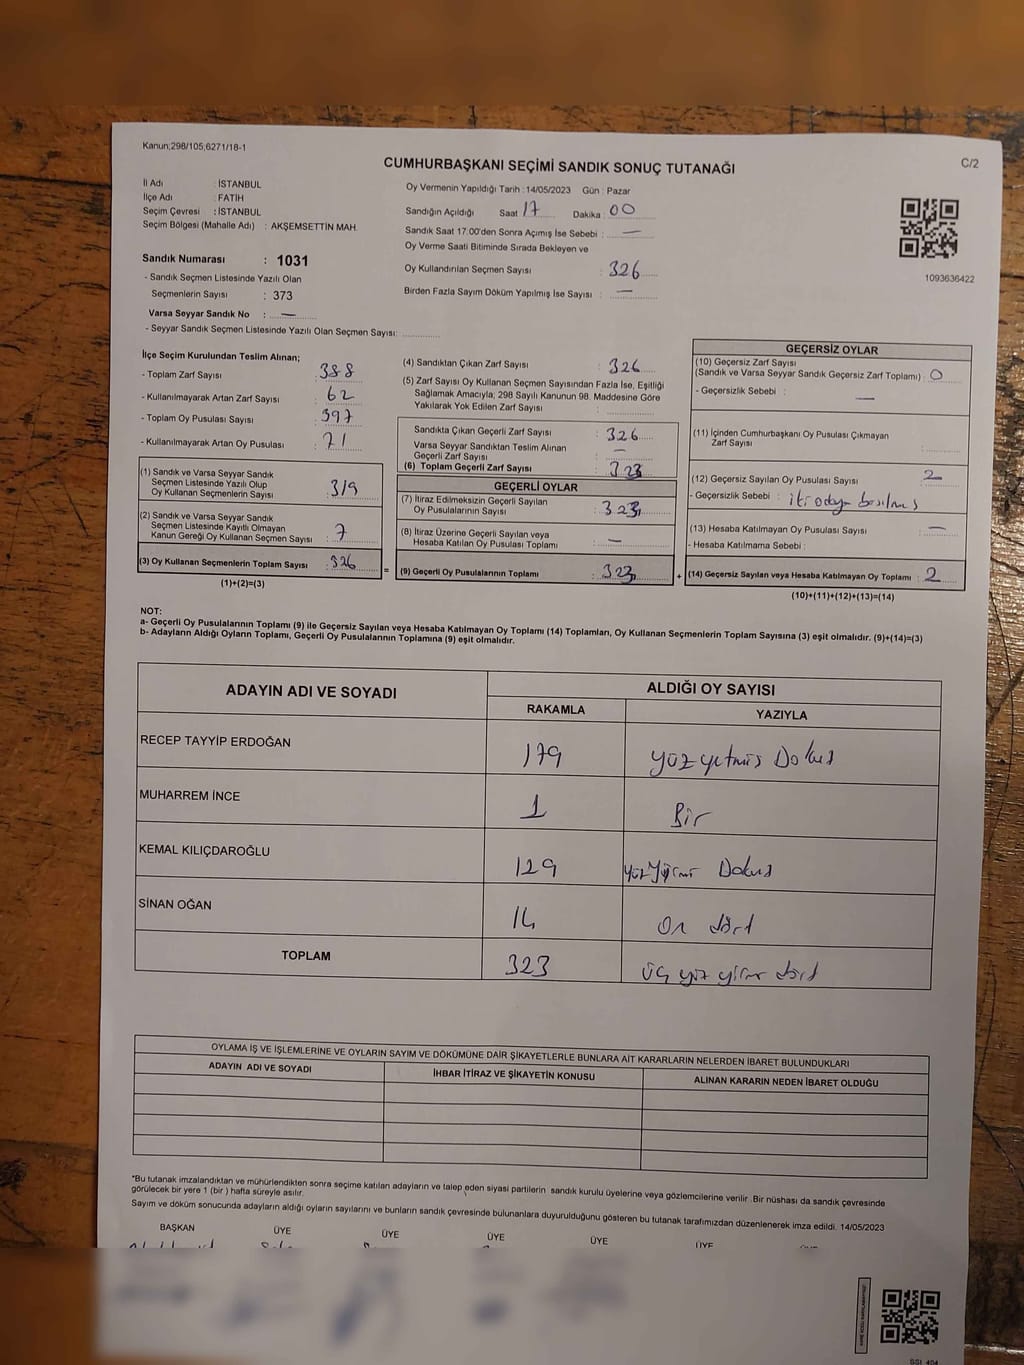 Kanun;298/105,6271/18-1
C/2
CUMHURBAŞKANI SEÇİMİ SANDIK SONUÇ TUTANAĞI
İl Adı : İSTANBUL
İlçe Adı : FATİH
Seçim Çevresi : İSTANBUL
Seçim Bölgesi (Mahalle Adı) : AKŞEMSETTİN MAH.
Sandık Numarası : 1031
- Sandık Seçmen Listesinde Yazılı Olan
Seçmenlerin Sayısı : 373
Varsa Seyyar Sandık No : —
- Seyyar Sandık Seçmen Listesinde Yazılı Olan Seçmen Sayısı:
Oy Vermenin Yapıldığı Tarih : 14/05/2023 Gün : Pazar
Sandığın Açıldığı Saat 17 Dakika : 00
Sandık Saat 17.00'den Sonra Açımış İse Sebebi : —
Oy Verme Saati Bitiminde Sırada Bekleyen ve
Oy Kullandırılan Seçmen Sayısı : 326
Birden Fazla Sayım Döküm Yapılmış İse Sayısı : —
1093636422
İlçe Seçim Kurulundan Teslim Alınan;
- Toplam Zarf Sayısı : 388
- Kullanılmayarak Artan Zarf Sayısı : 62
- Toplam Oy Pusulası Sayısı : 397
- Kullanılmayarak Artan Oy Pusulası : 71
(1) Sandık ve Varsa Seyyar Sandık
Seçmen Listesinde Yazılı Olup
Oy Kullanan Seçmenlerin Sayısı : 319
(2) Sandık ve Varsa Seyyar Sandık
Seçmen Listesinde Kayıtlı Olmayan
Kanun Gereği Oy Kullanan Seçmen Sayısı : 7
(3) Oy Kullanan Seçmenlerin Toplam Sayısı : 326
(1)+(2)=(3)
=
(4) Sandıktan Çıkan Zarf Sayısı : 326
(5) Zarf Sayısı Oy Kullanan Seçmen Sayısından Fazla İse, Eşitliği
Sağlamak Amacıyla, 298 Sayılı Kanunun 98. Maddesine Göre
Yakılarak Yok Edilen Zarf Sayısı :
Sandıkta Çıkan Geçerli Zarf Sayısı : 326
Varsa Seyyar Sandıktan Teslim Alınan
Geçerli Zarf Sayısı : —
(6) Toplam Geçerli Zarf Sayısı : 323
GEÇERLİ OYLAR
(7) İtiraz Edilmeksizin Geçerli Sayılan
Oy Pusulalarının Sayısı : 323
(8) İtiraz Üzerine Geçerli Sayılan veya
Hesaba Katılan Oy Pusulası Toplamı : —
(9) Geçerli Oy Pusulalarının Toplamı : 323
+
GEÇERSİZ OYLAR
(10) Geçersiz Zarf Sayısı
(Sandık ve Varsa Seyyar Sandık Geçersiz Zarf Toplamı) : 0
- Geçersizlik Sebebi : —
(11) İçinden Cumhurbaşkanı Oy Pusulası Çıkmayan
Zarf Sayısı :
(12) Geçersiz Sayılan Oy Pusulası Sayısı : 2
- Geçersizlik Sebebi : iki odaya basılmış
(13) Hesaba Katılmayan Oy Pusulası Sayısı : —
- Hesaba Katılmama Sebebi :
(14) Geçersiz Sayılan veya Hesaba Katılmayan Oy Toplamı : 2
(10)+(11)+(12)+(13)=(14)
NOT:
a- Geçerli Oy Pusulalarının Toplamı (9) ile Geçersiz Sayılan veya Hesaba Katılmayan Oy Toplamı (14) Toplamları, Oy Kullanan Seçmenlerin Toplam Sayısına (3) eşit olmalıdır. (9)+(14)=(3)
b- Adayların Aldığı Oyların Toplamı, Geçerli Oy Pusulalarının Toplamına (9) eşit olmalıdır.
ADAYIN ADI VE SOYADI ALDIĞI OY SAYISI
RAKAMLA YAZIYLA
RECEP TAYYİP ERDOĞAN 179 yüz yetmiş Dokuz
MUHARREM İNCE 1 Bir
KEMAL KILIÇDAROĞLU 129 yüz yirmi Dokuz
SİNAN OĞAN 14 On dört
TOPLAM 323 üç yüz yirmi dört
OYLAMA İŞ VE İŞLEMLERİNE VE OYLARIN SAYIM VE DÖKÜMÜNE DAİR ŞİKAYETLERLE BUNLARA AİT KARARLARIN NELERDEN İBARET BULUNDUKLARI
ADAYIN ADI VE SOYADI İHBAR İTİRAZ VE ŞİKAYETİN KONUSU ALINAN KARARIN NEDEN İBARET OLDUĞU
*Bu tutanak imzalandıktan ve mühürlendikten sonra seçime katılan adayların ve talep eden siyasi partilerin sandık kurulu üyelerine veya gözlemcilerine verilir. Bir nüshası da sandık çevresinde
görülecek bir yere 1 (bir ) hafta süreyle asılır.
Sayım ve döküm sonucunda adayların aldığı oyların sayılarını ve bunların sandık çevresinde bulunanlara duyurulduğunu gösteren bu tutanak tarafımızdan düzenlenerek imza edildi. 14/05/2023
BAŞKAN ÜYE ÜYE ÜYE ÜYE ÜYE